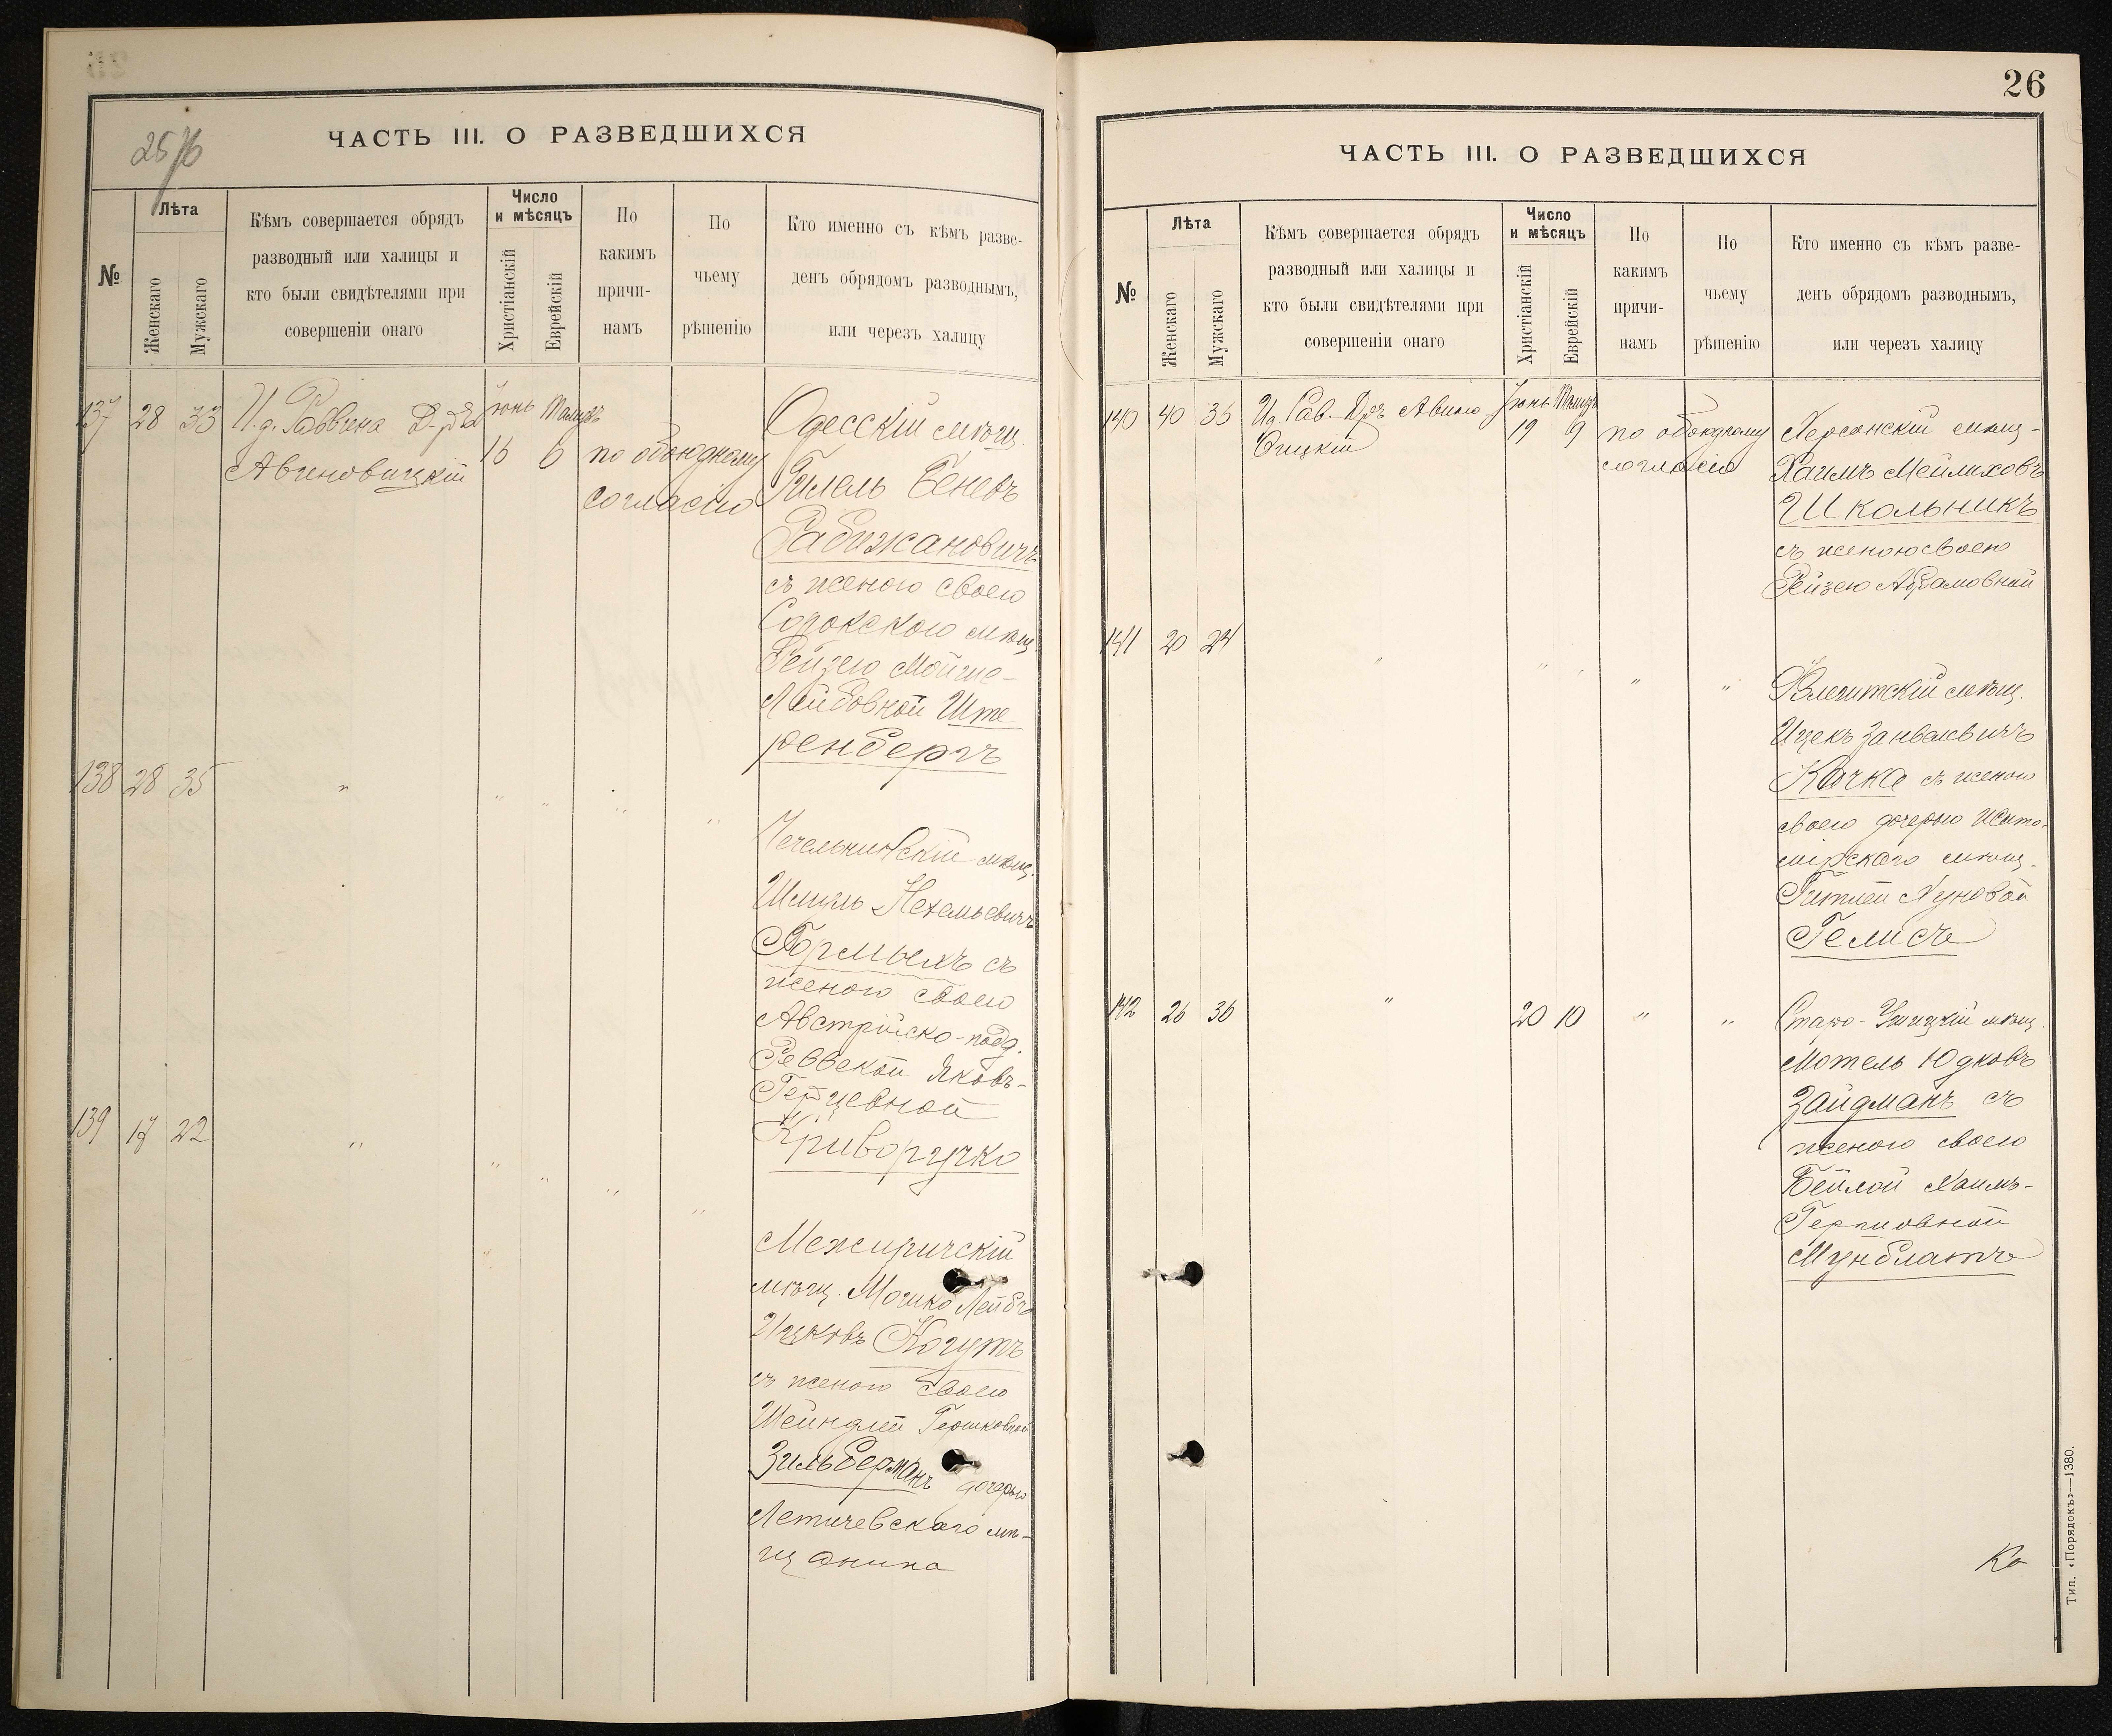 25/6
ЧАСТЬ III. О РАЗВЕДШИХСЯ
№
Лѣта
Женскаго
Мужскаго
Кѣмъ совершается обрядъ
разводный или халицы и
кто были свидѣтелями при
совершеніи онаго
Число
и мѣсяцъ
Христіанскій
Еврейскій
По
какимъ
причи-
намъ
По
чьему
рѣшенію
Кто именно съ кѣмъ разве-
денъ обрядомъ разводнымъ,
или черезъ халицу
137 28 33 И.д. Раввина Д-ръ
Авиновицкій
Іюнь Тамузъ
16 6
по обоюдному
согласію
Одесскій мѣщ.
Гилель Беневъ
Рабижановичъ
съ женою своею
Сорокскою мѣщ.
Рейзею Мойше-
Лейбовной Ште
ренбергъ
138 28 35 " " " " "
Чечельницкій мѣщ.
Шмиль Нехемьевичъ
съ
женою своею
Австрійско-подд.
Реввекой Яковъ-
Герцевной
Криворучко
139 17 22 " " " " "
Межиричскій
мѣщ. Мошко Лейбъ
Ицковъ Когутъ
съ женою своею
Шейндлей Гершковной
Зильберманъ дочерью
Летичевскаго мѣ-
щанина
26
ЧАСТЬ III. О РАЗВЕДШИХСЯ
№
Лѣта
Женскаго
Мужскаго
Кѣмъ совершается обрядъ
разводный или халицы и
кто были свидѣтелями при
совершеніи онаго
Число
и мѣсяцъ
Христіанскій
Еврейскій
По
какимъ
причи-
намъ
По
чьему
рѣшенію
Кто именно съ кѣмъ разве-
денъ обрядомъ разводнымъ,
или черезъ халицу
140 40 35 Ид. Рав. Дръ Авино-
вицкій
Іюнь Тамузъ
19 9
по обоюдному
согласію
Херсонскій мѣщ-
Хаимъ Мейлиховъ
Школьникъ
съ женою своею
Рейзею Абрамовной
141 20 24 " " " " "
мѣщ.
Ицекъ Занвелевичъ
Качка съ женою
своею дочерью Жито-
мірскаго мѣщ.
Гитлей Хуновой
Гелисъ
142 26 36 " 20 10 " "
Старо-Ушицкій мѣщ.
Мотель Юдковъ
Зайдманъ съ
женою своею
Бейлой Хаимъ-
Мунблатъ
Ко
Тип. «Порядокъ»—1380.